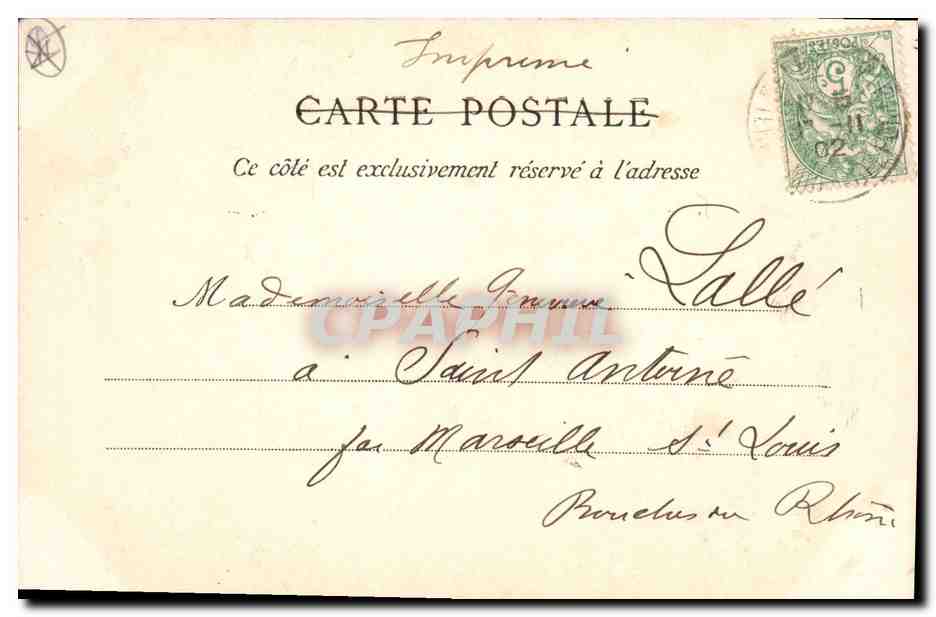 Imprimé
CARTE POSTALE
Ce côté est exclusivement réservé à l'adresse
POSTES
5
11
02
Mademoiselle Geneviève Lallé
CPAPHIL
à Saint Antoine
par Marseille St Louis
Bouches du Rhône